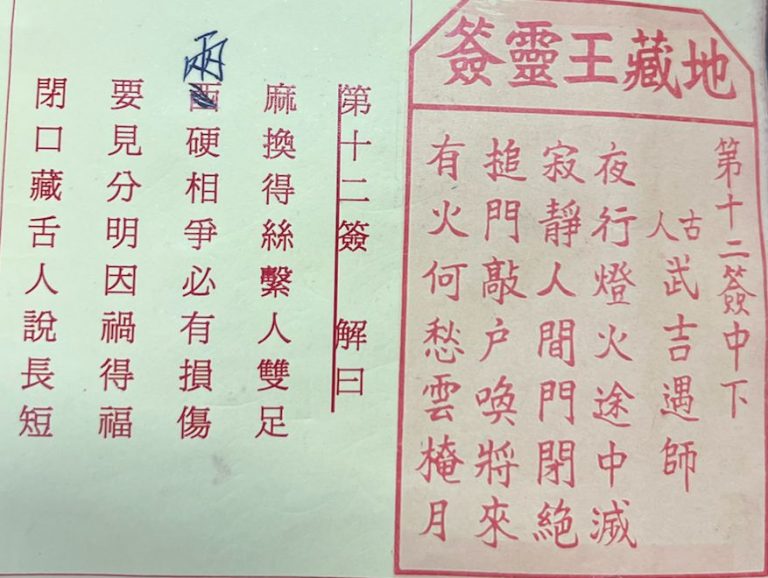 地藏王靈簽
第十二簽中下
古人武吉遇師
夜行燈火途中滅
寂靜人間門閉絕
搥門敲户喚將來
有火何愁雲掩月
第十二簽 解曰
麻換得絲繫人雙足
兩硬相爭必有損傷
要見分明因禍得福
閉口藏舌人說長短